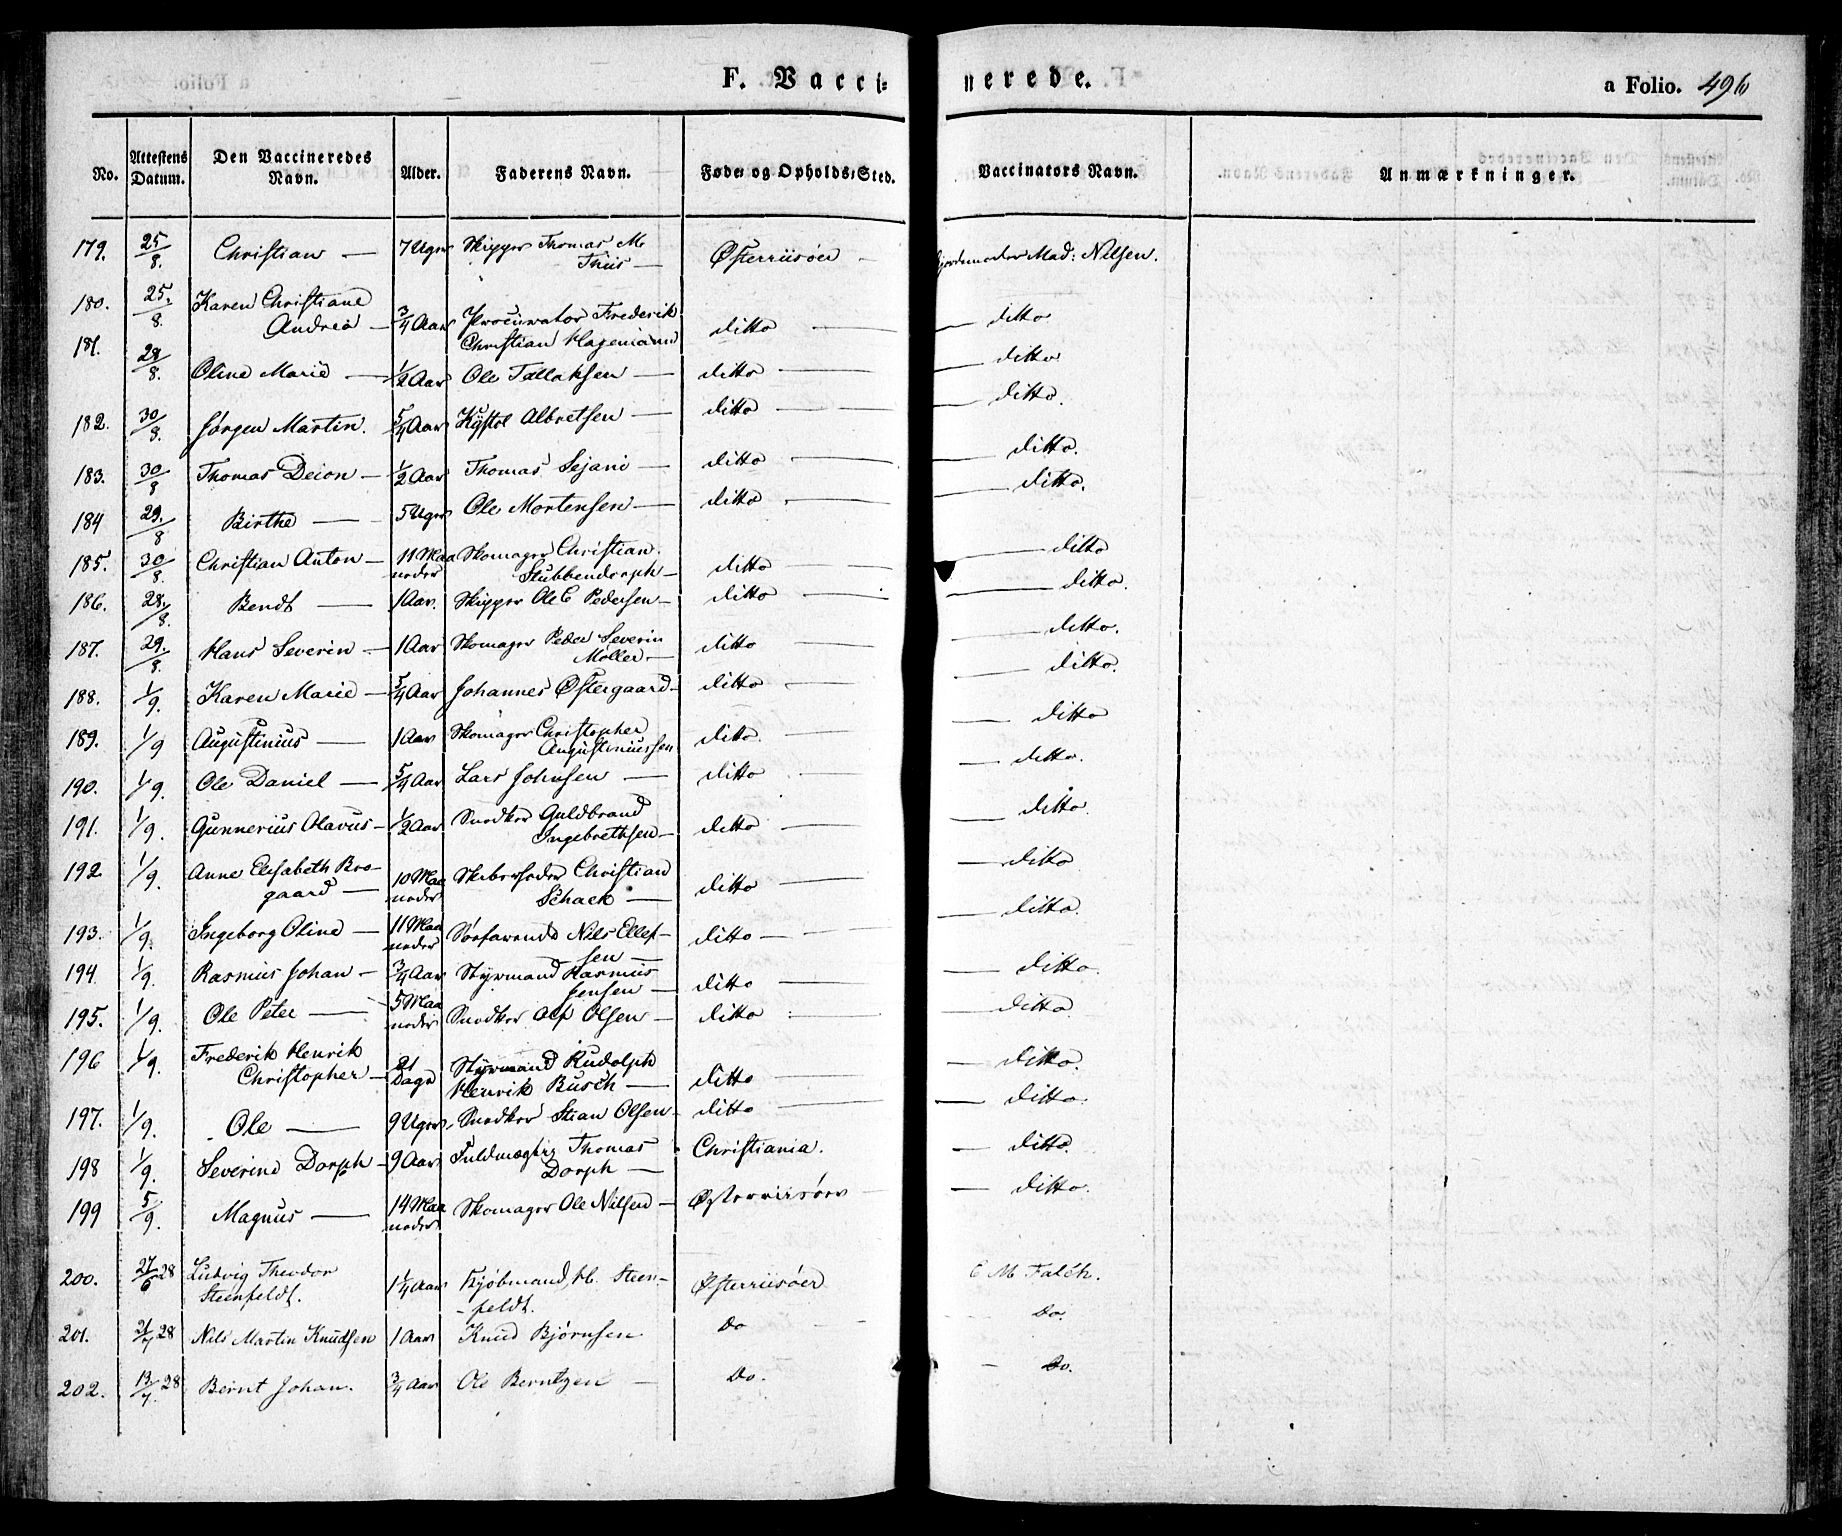 F. Vacci=
nerede.
a Folio. 496
No.
Attestens Datum.
Den Vaccineredes Navn.
Alder.
Faderens Navn.
Føde= og Opholds=Sted.
Vaccinators Navn.
Anmærkninger.
179. 25/8. Christian — 7 Uger Skipper Thomas M. Thiis — Østerriisøer — Mad: Nilsen.
180. 25/8. Karen Christiane Andrea — 3/4 Aar Procurator Frederik Christian Hagemann ditto — ditto
181. 28/8. Oline Marie — 1/2 Aar Ole Tallaksen — ditto — ditto
182. 30/8. Jørgen Martin. 5/4 Aar Kystol Albretsen — ditto — ditto.
183. 30/8 Thomas Deion — 1/2 Aar Thomas Sejani — ditto — ditto.
184 29./8 Birthe — 5 Uger Ole Mortensen — ditto — ditto.
185. 30/8. Christian Anton — 11 Maaneder Skomager Christian Stubbendorph — ditto — ditto
186. 28./8. Bendt — 1 Aar. Skipper Ole C Pedersen — ditto — ditto.
187. 29./8. Hans Severin — 1 Aar Skomager Peder Severin Møller — ditto — ditto.
188. 1/9. Karen Marie — 5/4 Aar Johannes Østergaard — ditto — ditto.
189. 1/9 Augustinius — 1 Aar Skomager Christopher Augustiniussen ditto. — ditto
190. 1/9. Ole Daniel — 5/4 Aar Lars Johnsen — ditto — ditto.
191. 1/9. Gunnerius Olavus — 1/2 Aar Snedker Guldbrand Ingebrethsen — ditto — ditto
192 1/9. Anne Elisabeth Brogaard — 10 Maaneder Christian Schack — ditto — ditto
193. 1/9. Ingeborg Oline — 11 Maaneder Søefarende Nils Ellefsen — ditto — ditto.
194 1/9. Rasmus Johan — 3/4 Aar Styrmand Rasmus Jensen — ditto — ditto.
195. 1/9. Ole Peter — 5 Maaneder Snedker Olsen — ditto — ditto.
196 1/9. Frederik Henrik Christopher — 21 Dage Styrmand Rudolph Henrik Busch — ditto — ditto.
197. 1/9. Ole — 9 Uger Snedker Stian Olsen — ditto — ditto.
198 1/9. Severine Dorph — 9 Aar Fuldmægtig Thomas Dorph — Christiania. — ditto.
199 5/9. Magnus — 14 Maaneder Skomager Ole Nilsen — Østerriisøer — ditto.
200. 27/6 28 Ludvig Theodor Steenfeldt. 1 1/4 Aar Kjøbmand, H. Steenfeldt. Østerriisøer C M Falch.
201. 21/7 28 Nils Martin Knudsen 1 Aar Knud Bjørnsen Do — Do.
202. 12/7 28 Bernt Johan. 3/4 Aar Ole Berntzen — Do. — Do.